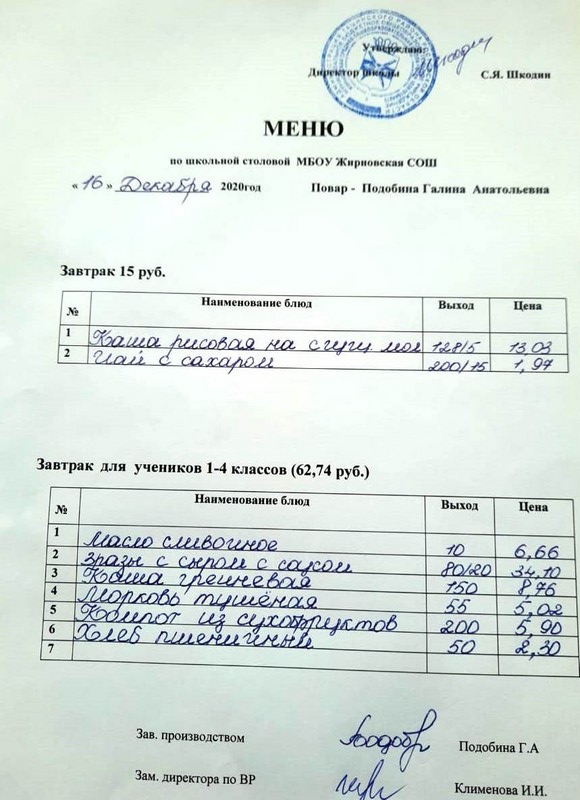 Утверждаю:
Директор школы С.Я. Шкодин
МЕНЮ
по школьной столовой МБОУ Жирновская СОШ
« 16 » Декабря 2020год Повар - Подобина Галина Анатольевна
Завтрак 15 руб.
№ Наименование блюд Выход Цена
1 Каша рисовая на сгущ. мол 128/5 13,03
2 Чай с сахаром 200/15 1,97
Завтрак для учеников 1-4 классов (62,74 руб.)
№ Наименование блюд Выход Цена
1 Масло сливочное 10 6,66
2 Зразы с сыром с соусом 80/20 34,10
3 Каша гречневая 150 8,76
4 Морковь тушёная 55 5,02
5 Компот из сухофруктов 200 5,90
6 Хлеб пшеничный 50 2,30
7
Зав. производством Подобина Г.А
Зам. директора по ВР Клименова И.И.